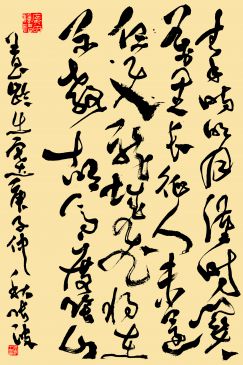 秦時明月漢時關
萬里長征人未還
但使龍城飛將在
不教胡馬度陰山
王昌齡出塞庚子仲秋